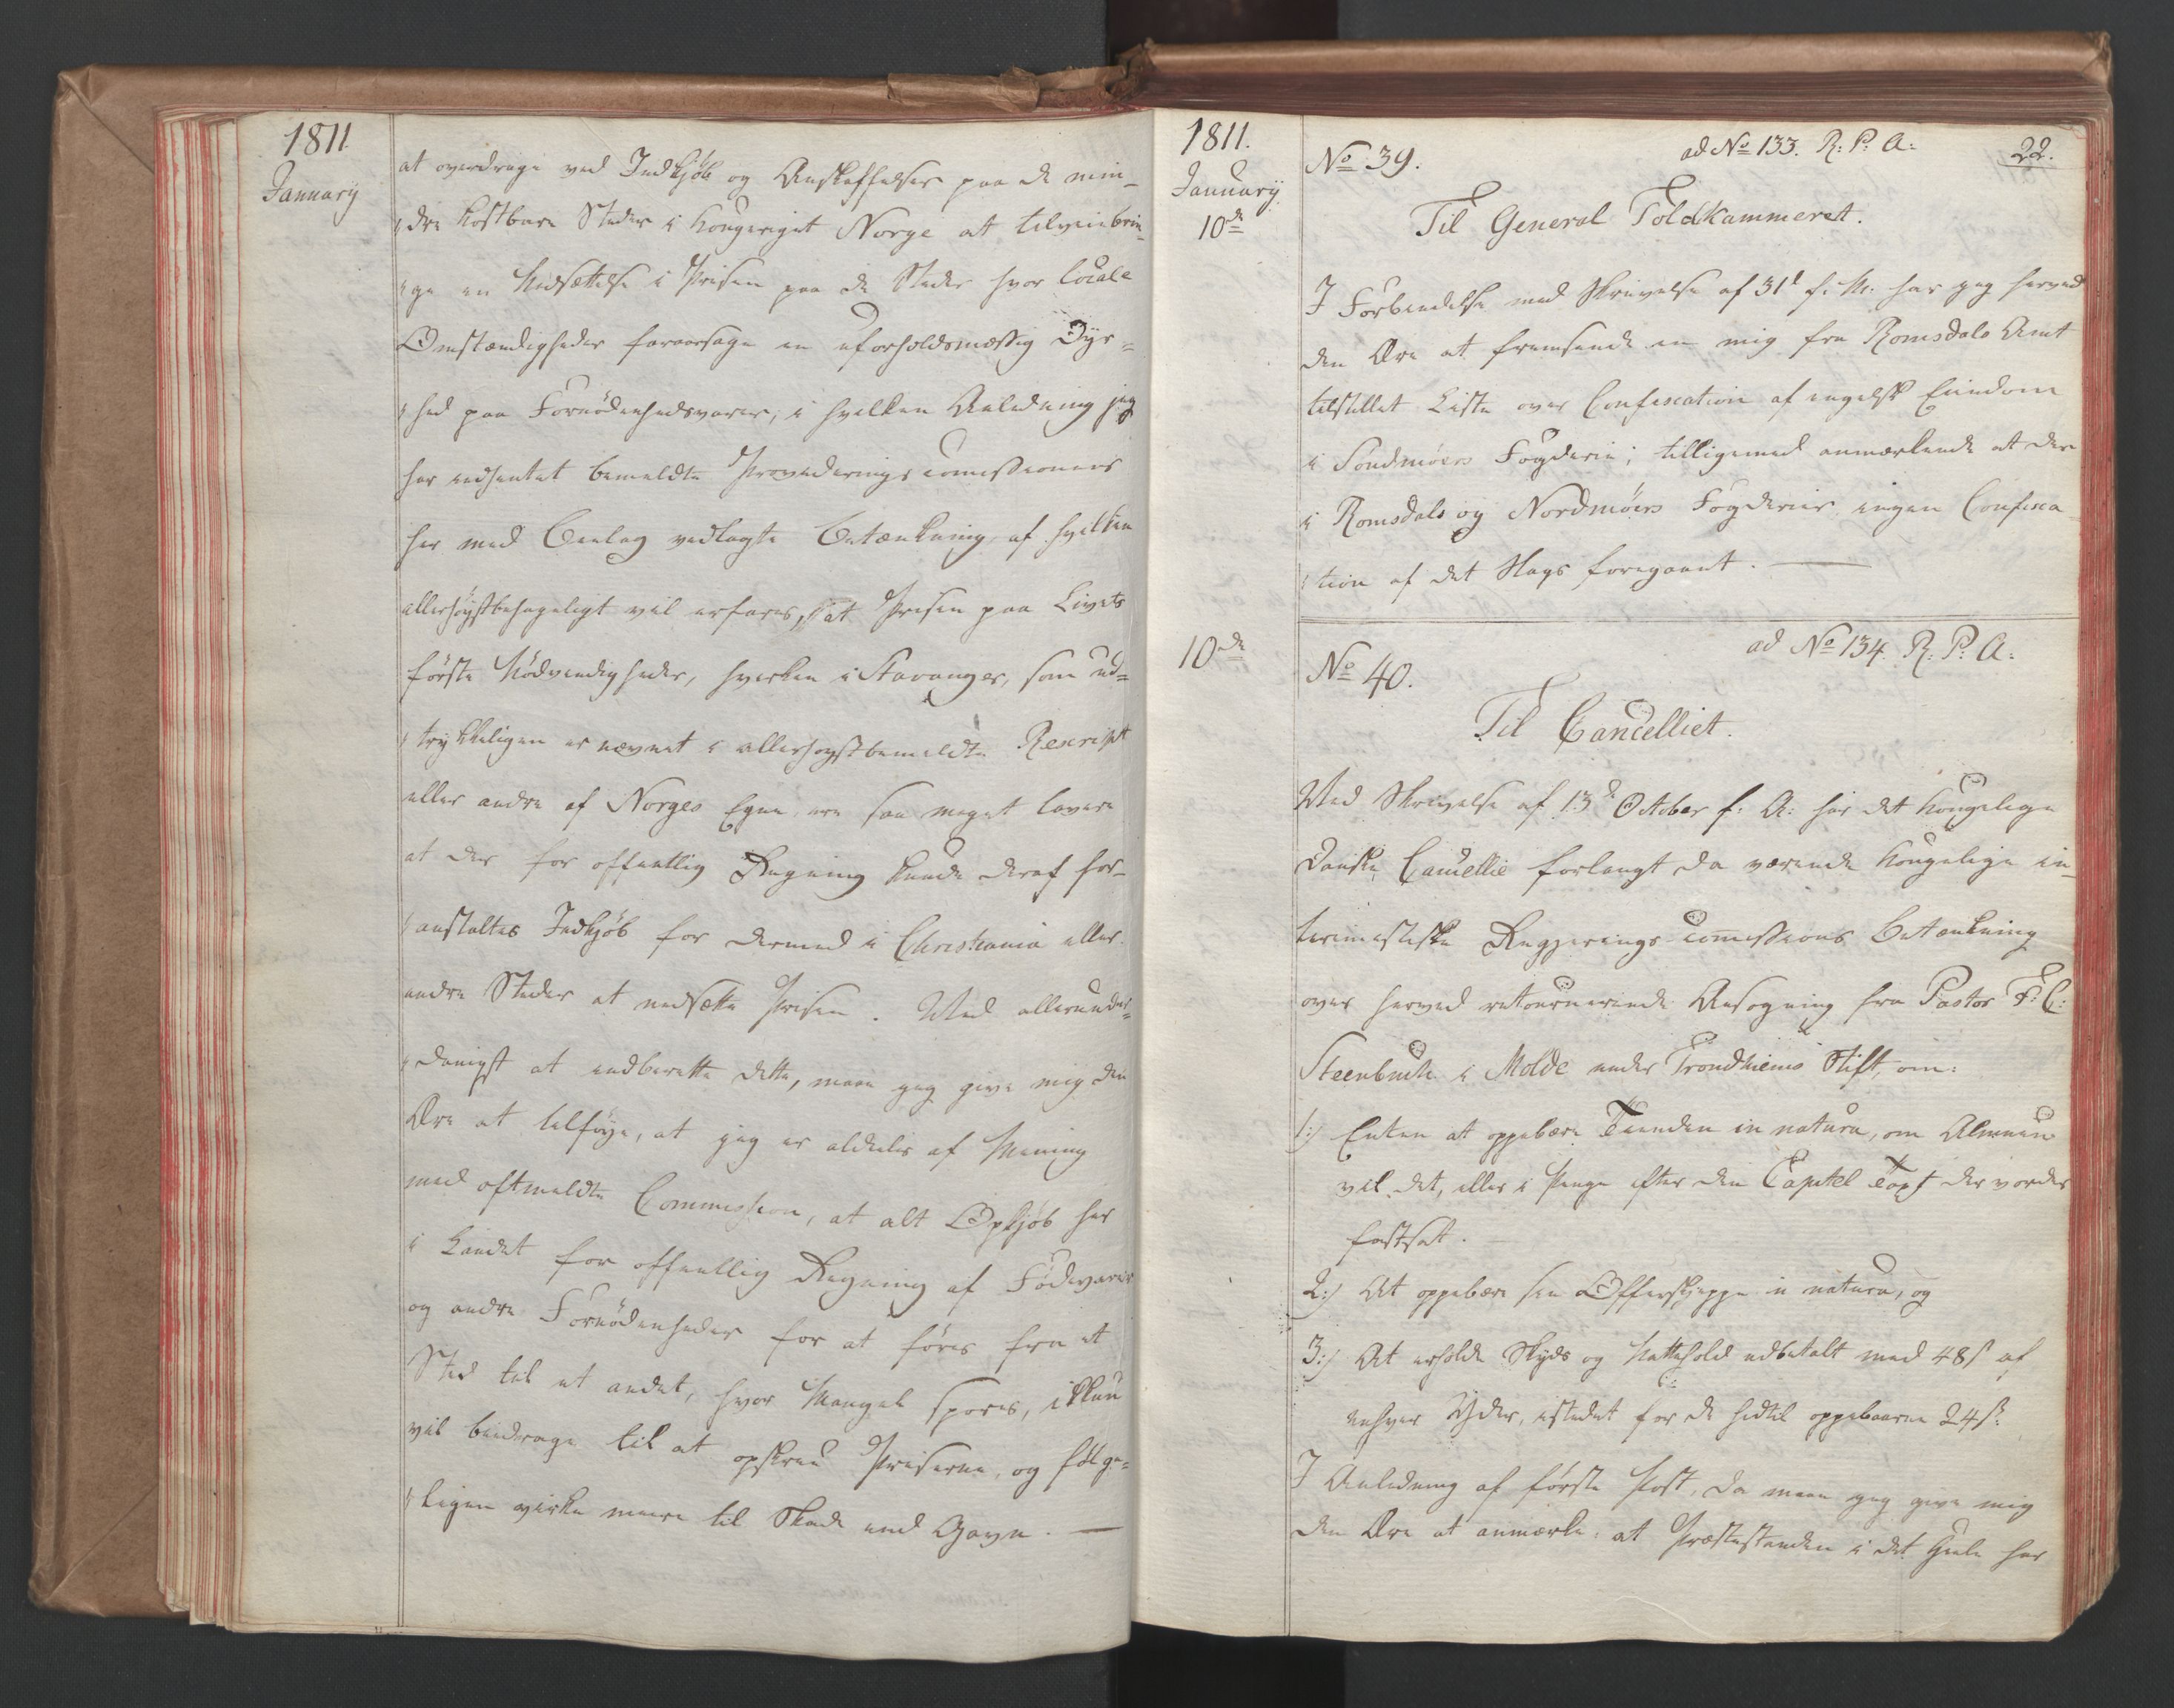 1811
January
at overdrage ved Indkjöb og Anskaffelser paa de min-
dre kostbare Steder i Kongeriget Norge at tilveiebrin-
ge en Nedsættelse i Prisen paa de Steder hvor locale
Omstændigheder foraarsage en uforholdsmæssig Dyr=
hed paa Fornödenhedsvarer, i hvilken Anledning jeg
har indhentet bemeldte Provideringscommissioners
her med Beilag vedlagte Betænkning, af hvilken
allerhøystbehageligt vil erfares, at Prisen paa Livets
förste Nödvendigheder, hverken i Stavanger, som ud=
trykkeligen er nævnet i allerhøystbemeldte Rescript
eller andre af Norges Egne ere saa meget lavere
at der for offentlig Regning kunde deraf for-
anstaltes Indkjöb for dermed i Christiania eller
andre Steder at nedsætte Prisen. Ved allerunder=
danigst at indberette dette, maae jeg give mig den
Ære at tilföye, at jeg er aldeles af Mening
med oftmeldte Commission, at alt Opkjöb her
i Landet for offentlig Regning af Födevarer
og andre Fornödenheder for at föres fra et
Sted til et andet, hvor Mangel spores, ikkun
vil bidrage til at opskrue Priserne, og fölge=
ligen virke meere til Skade end Gavn. —
1811.
January
10de
No 39.
ad No 133. R: P: A:
22.
Til General Toldkammeret.
I Forbindelse med Skrivelse af 31t f. M. har jeg herved
den Ære at fremsende en mig fra Romsdals Amt
tilstillet Liste over Confiscation af engelsk Eiendom
i Söndmöers Fogderie; tilligemed anmærkende at der
i Romsdals og Nordmöers Fogderier ingen Confisca
tion af det Slags foregaaet. —
10de
No 40.
ad No 134. R: P: A:
Til Cancelliet.
Ved Skrivelse af 13de October f: A: har det Kongelige
Danske Cancellie forlangt da værende Kongelige in-
terimistiske Regjerings-Commissions Betænkning
over herved retournerende Ansögning fra Pastor F: C:
Steenbuch i Molde under Trondhiems Stift, om:
1:) Enten at oppebære Tienden in natura, om Almuen
vil det, eller i Penge efter den Capitel Taxt der vorder
fastsat. —
2:) At oppebære sin Offerskjeppe in natura, og
3:) At erholde Skyds og Nattehold udbetalt med 48 s af
enhver Yder, istedet for de hidtil oppebaarne 24 s.
I Anledning af förste Post, da maae jeg give mig
den Ære at anmærke: at Præstestanden i det Hele har